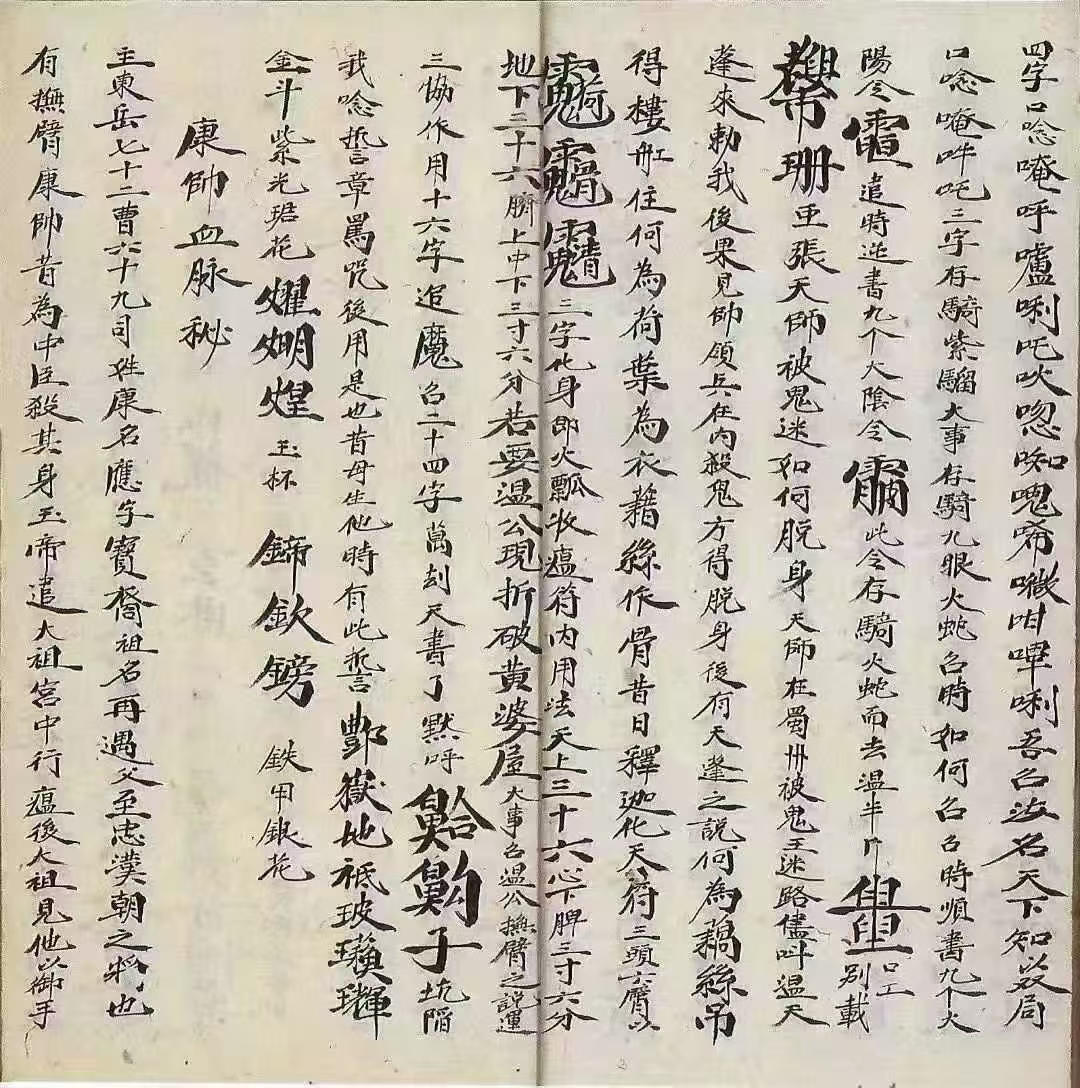 四字口唸唵呼嚧唎吒吙唿啣嘰咁嗶唎吾名汝名天下知以及局
口唸唵吽吒二字存騎紫騮大事存騎九眼火蛇召時如何召召時順書九个火
陽令遣時逆書九个大陰令此令存騎火蛇而去温半口工別載
珊玉張天師被鬼迷如何脱身天師在蜀州被鬼王迷路儘叫温天
蓬來勅我後果見帥領兵在内殺鬼方得脱身後有天蓬之説何為藕絲吊
得樓舡住何為荷葉為衣藕絲作骨昔日釋迦化天符三頭六臂以
三字化身即火瓢收瘟符内用法天上三十六心下脾三寸六分
地下三十六臍上中下三寸六分若要温公現折破黄婆屋大事召温公撫臂之説運
三協作用十六字追魔召二十四字萬刦天書了黙呼子坑陷
我唸誓章罵咒後用是也昔母生他時有此誓酆嶽地祇玻瓈琿
金斗紫光珺花耀煳煌玉杯鍗欽鎊鉄甲銀花
康帥血脉秘
主東岳七十二曹六十九司姓康名應字寳裔祖名再遇父至忠漢朝之將也
有撫臂康帥昔為中臣殺其身玉帝遣大祖宮中行瘟後大祖見他以御手